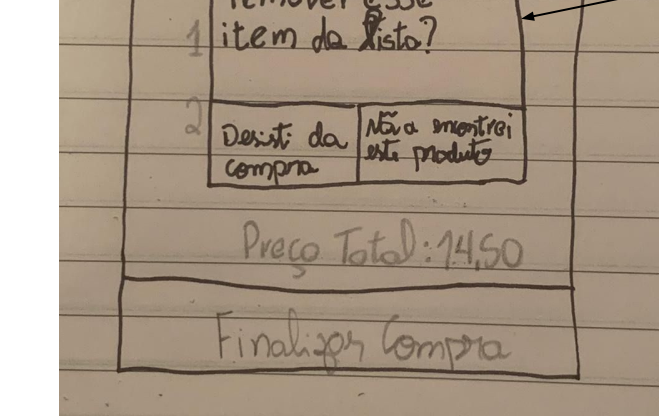 remover esse
1 item da lista?
2
Desisti da
compra
Não encontrei
este produto
Preço Total: 14,50
Finalizar Compra